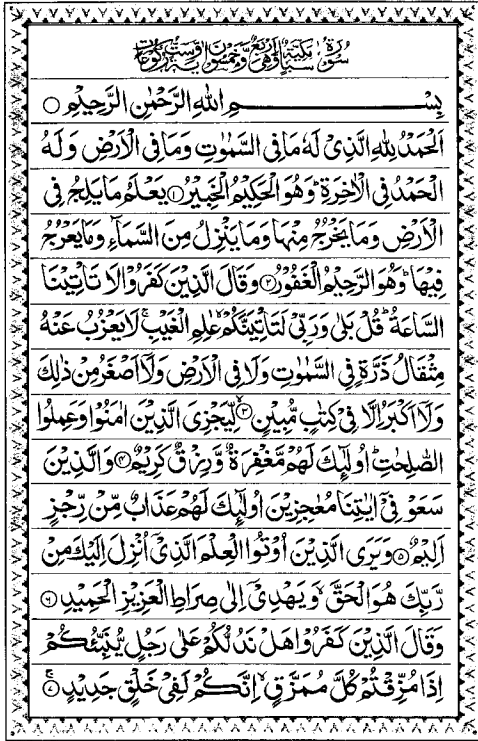 سُوْرَةُ سَبَاٍ مَكِّيَّةٌ وَّهِيَ اَرْبَعٌ وَّخَمْسُوْنَ اٰيَةً وَّسِتُّ رُكُوْعَاتٍ
بِسْمِ اللهِ الرَّحْمٰنِ الرَّحِيْمِ ○
اَلْحَمْدُ لِلّٰهِ الَّذِيْ لَهٗ مَا فِي السَّمٰوٰتِ وَمَا فِي الْاَرْضِ وَلَهُ
الْحَمْدُ فِي الْاٰخِرَةِ ؕ وَهُوَ الْحَكِيْمُ الْخَبِيْرُ ① يَعْلَمُ مَا يَلِجُ فِي
الْاَرْضِ وَمَا يَخْرُجُ مِنْهَا وَمَا يَنْزِلُ مِنَ السَّمَآءِ وَمَا يَعْرُجُ
فِيْهَا ؕ وَهُوَ الرَّحِيْمُ الْغَفُوْرُ ② وَقَالَ الَّذِيْنَ كَفَرُوْا لَا تَاْتِيْنَا
السَّاعَةُ ؕ قُلْ بَلٰى وَرَبِّيْ لَتَاْتِيَنَّكُمْ ۙ عٰلِمِ الْغَيْبِ ۚ لَا يَعْزُبُ عَنْهُ
مِثْقَالُ ذَرَّةٍ فِي السَّمٰوٰتِ وَلَا فِي الْاَرْضِ وَلَاۤ اَصْغَرُ مِنْ ذٰلِكَ
وَلَاۤ اَكْبَرُ اِلَّا فِيْ كِتٰبٍ مُّبِيْنٍ ③ۙ لِّيَجْزِيَ الَّذِيْنَ اٰمَنُوْا وَعَمِلُوا
الصّٰلِحٰتِ ؕ اُولٰٓئِكَ لَهُمْ مَّغْفِرَةٌ وَّرِزْقٌ كَرِيْمٌ ④ وَالَّذِيْنَ
سَعَوْ فِيْۤ اٰيٰتِنَا مُعٰجِزِيْنَ اُولٰٓئِكَ لَهُمْ عَذَابٌ مِّنْ رِّجْزٍ
اَلِيْمٌ ⑤ وَيَرَى الَّذِيْنَ اُوْتُوا الْعِلْمَ الَّذِيْۤ اُنْزِلَ اِلَيْكَ مِنْ
رَّبِّكَ هُوَ الْحَقَّ ۙ وَيَهْدِيْۤ اِلٰى صِرَاطِ الْعَزِيْزِ الْحَمِيْدِ ⑥
وَقَالَ الَّذِيْنَ كَفَرُوْا هَلْ نَدُلُّكُمْ عَلٰى رَجُلٍ يُّنَبِّئُكُمْ
اِذَا مُزِّقْتُمْ كُلَّ مُمَزَّقٍ ۙ اِنَّكُمْ لَفِيْ خَلْقٍ جَدِيْدٍ ⑦ۚ